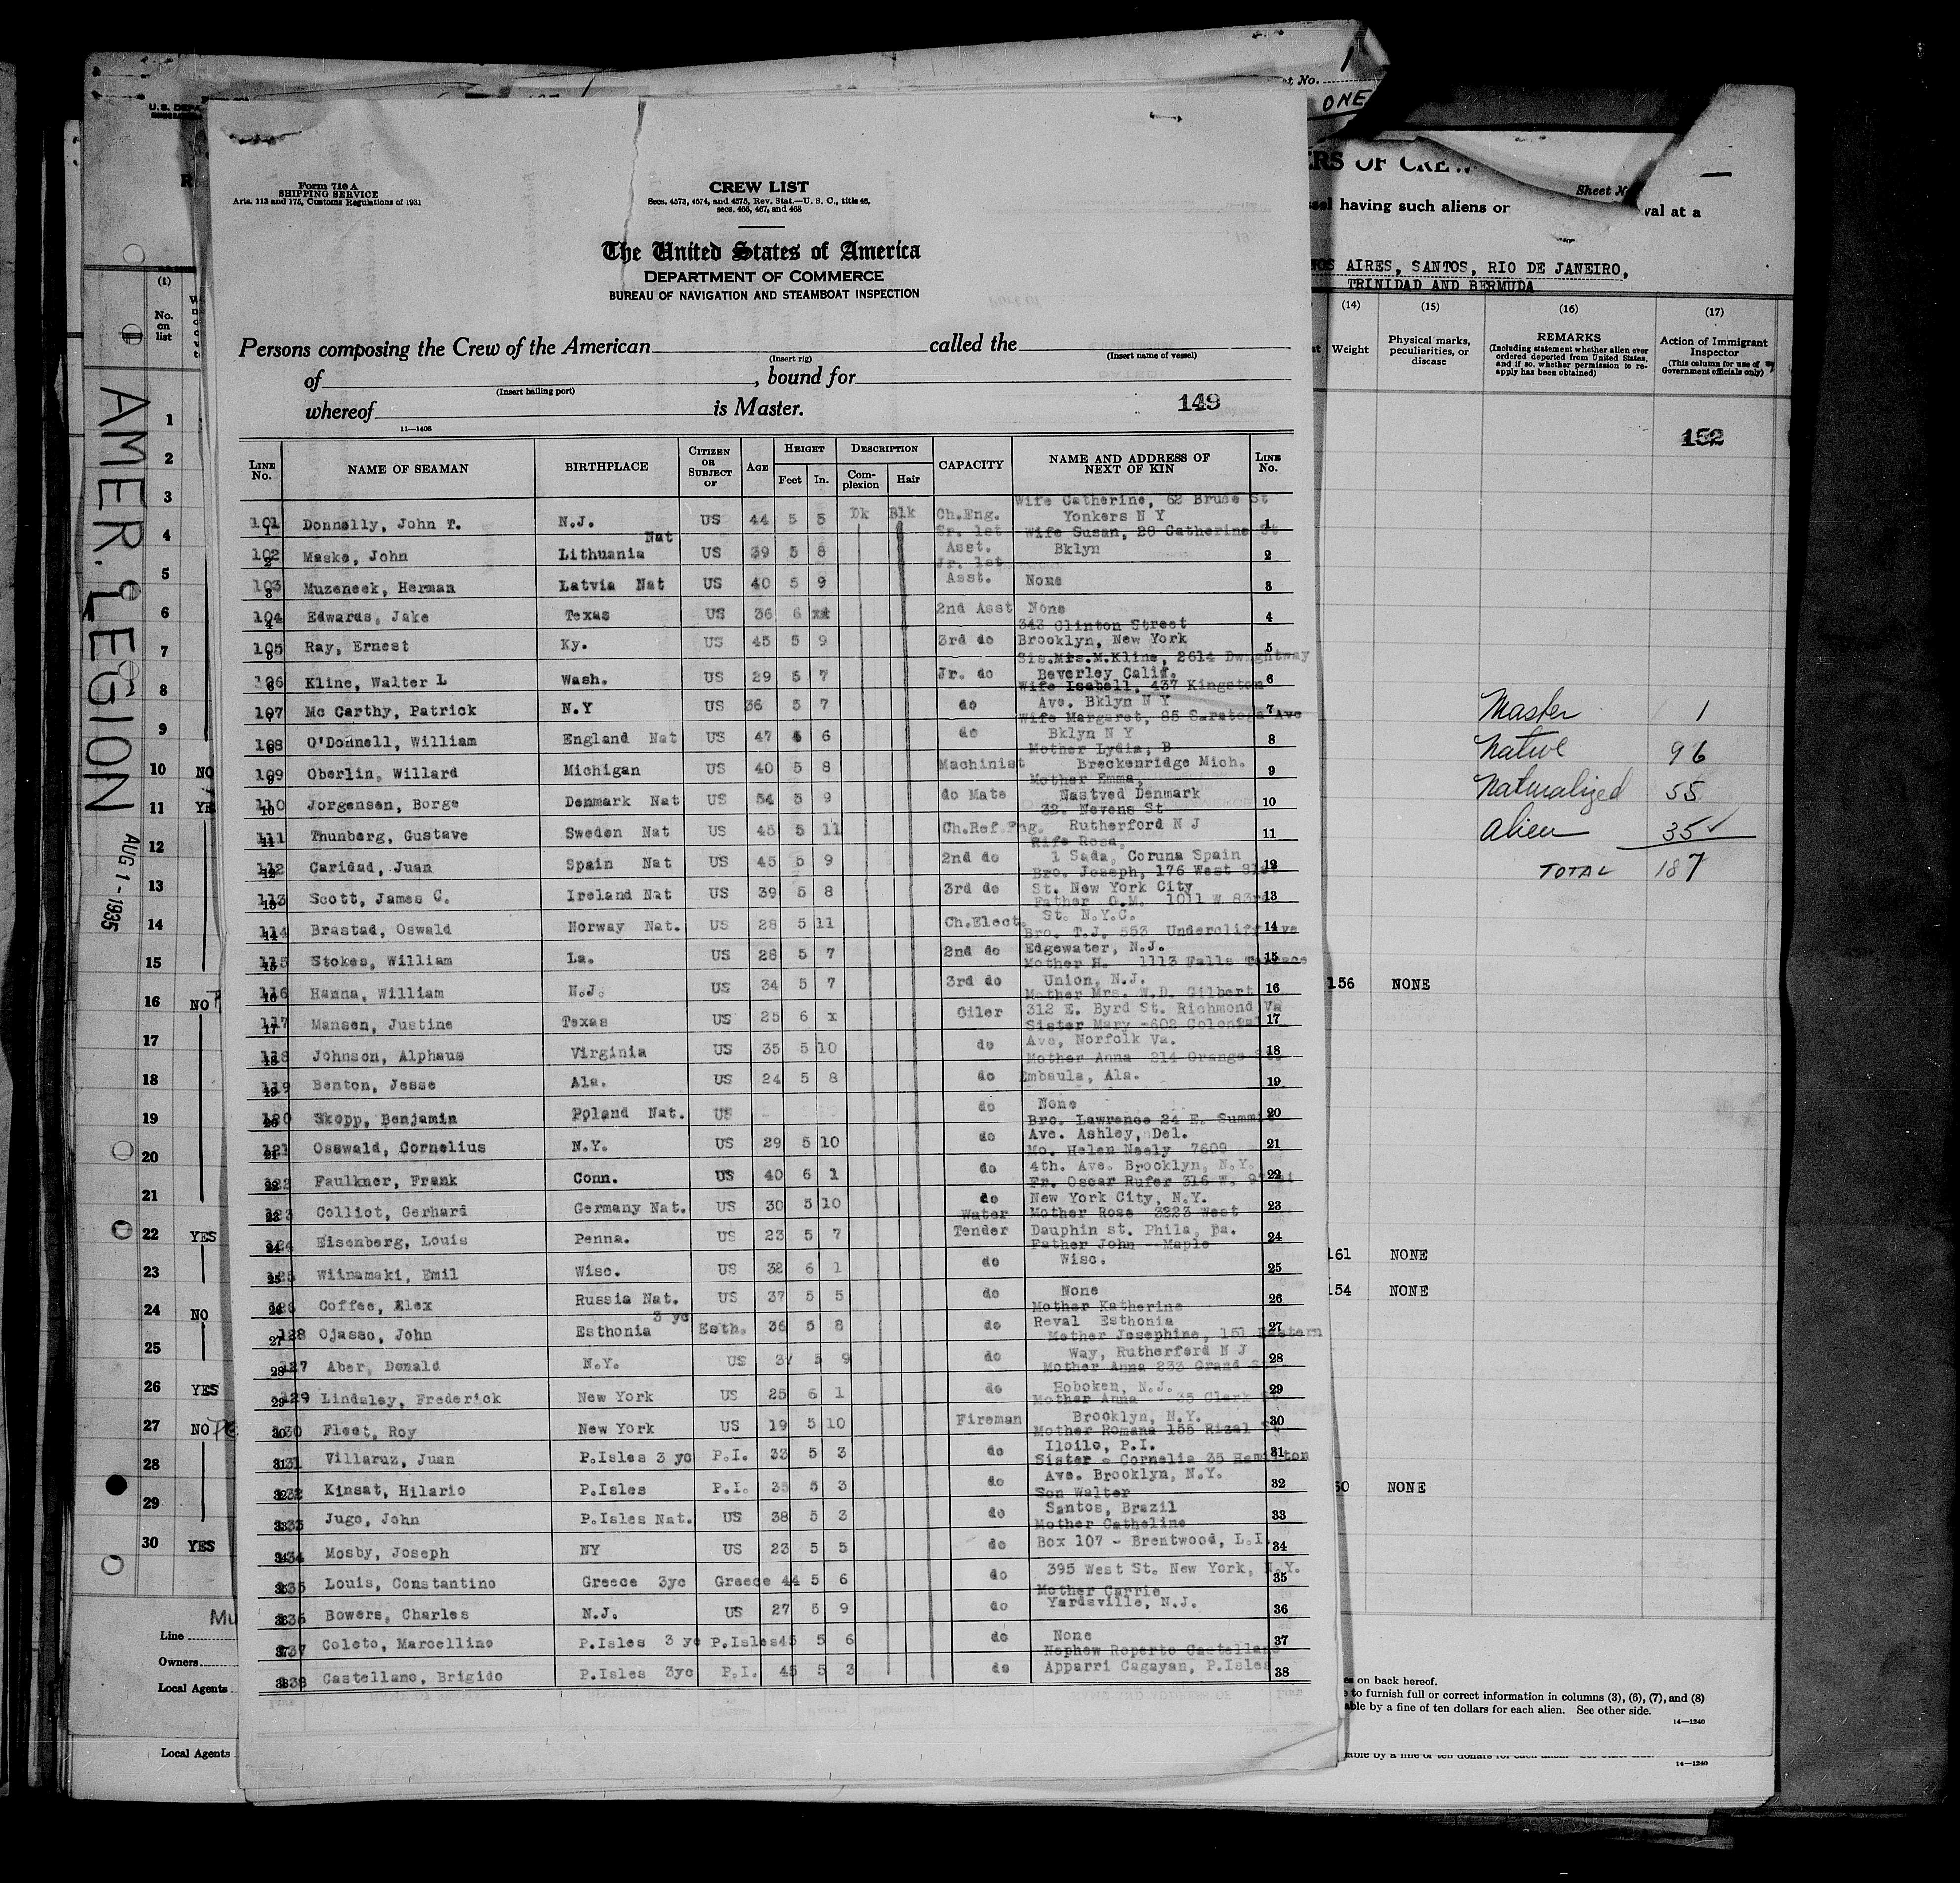 Form 710 A
SHIPPING SERVICE
Arts. 113 and 175, Customs Regulations of 1931
CREW LIST
Secs. 4573, 4574, and 4575, Rev. Stat.—U. S. C., title 46,
secs. 466, 467, and 468
The United States of America
DEPARTMENT OF COMMERCE
BUREAU OF NAVIGATION AND STEAMBOAT INSPECTION
Persons composing the Crew of the American called the
(Insert rig) (Insert name of vessel)
of , bound for
(Insert hailing port)
whereof is Master.
11—1408
149
LINE No. NAME OF SEAMAN BIRTHPLACE CITIZEN OR SUBJECT OF AGE HEIGHT Feet In. DESCRIPTION Complexion Hair CAPACITY NAME AND ADDRESS OF NEXT OF KIN LINE No.
101 Donnelly, John T. N.J. US 44 5 5 Dk Blk Ch.Eng. Wife Catherine, 62 Bruce St Yonkers N Y 1
102 Maske, John Lithuania Nat US 39 5 8 Sr. 1st Asst. Wife Susan, 28 Catherine St Bklyn 2
103 Muzeneek, Herman Latvia Nat US 40 5 9 Jr. 1st Asst. None 3
104 Edwards, Jake Texas US 36 6 2nd Asst None 4
105 Ray, Ernest Ky. US 45 5 9 3rd do 343 Clinton Street Brooklyn, New York 5
106 Kline, Walter L Wash. US 29 5 7 Jr. do Sis.Mrs.M.Kline, 2614 Dwightway Beverley Calif. 6
107 Mc Carthy, Patrick N.Y US 36 5 7 do Wife Isabell, 437 Kingston Ave. Bklyn N Y 7
108 O'Donnell, William England Nat US 47 6 do Wife Margaret, 85 Saratoga Ave Bklyn N Y 8
109 Oberlin, Willard Michigan US 40 5 8 Machinist Mother Lydia, B Breckenridge Mich. 9
110 Jorgensen, Borge Denmark Nat US 54 5 9 do Mate Mother Emma, Nastved Denmark 10
111 Thunberg, Gustave Sweden Nat US 45 5 11 Ch.Ref.Eng. 32. Nevens St Rutherford N J 11
112 Caridad, Juan Spain Nat US 45 5 9 2nd do Wife Rosa, 1 Sada, Coruna Spain 12
113 Scott, James C. Ireland Nat US 39 5 8 3rd do Bro. Joseph, 176 West 81st St. New York City 13
114 Brastad, Oswald Norway Nat. US 28 5 11 Ch.Elect. Father O.M. 1011 W 83rd St. N.Y.C. 14
115 Stokes, William La. US 28 5 7 2nd do Bro. T.J. 553 Undercliff Ave Edgewater, N.J. 15
116 Hanna, William N.J. US 34 5 7 3rd do Mother H. 1113 Falls Terrace Union, N.J. 16
117 Mansen, Justine Texas US 25 6 x Oiler Mother Mrs. W.D. Gilbert 312 E. Byrd St. Richmond Va 17
118 Johnson, Alphaus Virginia US 35 5 10 do Sister Mary -602 Colonial Ave, Norfolk Va. 18
119 Benton, Jesse Ala. US 24 5 8 do Mother Anna 214 Orange St. Embaula, Ala. 19
120 Skopp, Benjamin Poland Nat. US do None 20
121 Osswald, Cornelius N.Y. US 29 5 10 do Bro. Lawrence 24 E. Summit Ave. Ashley, Del. 21
122 Faulkner, Frank Conn. US 40 6 1 do Mo. Helen Neely 7609 4th. Ave. Brooklyn, N.Y. 22
123 Colliot, Gerhard Germany Nat. US 30 5 10 do Fr. Oscar Rufer 316 W. New York City, N.Y. 23
124 Eisenberg, Louis Penna. US 23 5 7 Water Tender Mother Rose 3223 West Dauphin st. Phila, pa. 24
125 Wiinamaki, Emil Wisc. US 32 6 1 do Father John --Maple Wisc. 25
126 Coffee, Alex Russia Nat. US 37 5 5 do None 26
128 Ojasso, John Esthonia 3 yc Esth. 36 5 8 do Mother Katherine Reval Esthonia 27
127 Aber, Donald N.Y. US 37 5 9 do Mother Josephine, 151 Eastern Way, Rutherford N J 28
129 Lindsley, Frederick New York US 25 6 1 do Mother Anna 233 Grand St. Hoboken, N.J. 29
130 Fleet, Roy New York US 19 5 10 Fireman Mother Anna 35 Clark St Brooklyn, N.Y. 30
131 Villaruz, Juan P.Isles 3 yc P.I. 33 5 3 do Mother Romana 155 Rizal St Iloilo, P.I. 31
132 Kinsat, Hilario P.Isles P.I. 35 5 3 do Sister - Cornelia 35 Hamilton Ave. Brooklyn, N.Y. 32
133 Jugo, John P.Isles Nat. US 38 5 3 do Son Walter Santos, Brazil 33
134 Mosby, Joseph NY US 23 5 5 do Mother Catheline Box 107 - Brentwood, L.I. 34
135 Louis, Constantino Greece 3yc Greece 44 5 6 do 395 West St. New York, N.Y. 35
136 Bowers, Charles N.J. US 27 5 9 do Mother Carrie Yardsville, N.J. 36
137 Coleto, Marcellino P.Isles 3 yc P.Isles 45 5 6 do None 37
138 Castellano, Brigido P.Isles 3yc P.I. 45 5 3 do Nephew Roperto Castellano Apparri Cagayan, P.Isles 38
AMER. LEGION
AUG 1 - 1935
U.S. DEPA
(1)
No. on list
1
2
3
4
5
6
7
8
9
10 NO
11 YE
12
13
14
15
16 NO
17
18
19
20
21
22 YES
23
24 NO
25
26 YES
27 NO
28
29
30 YES
Line
Owners
Local Agents
Local Agents
No. 1
ONE
ERS OF CREW
Sheet N
ssel having such aliens or val at a
NOS AIRES, SANTOS, RIO DE JANEIRO,
TRINIDAD AND BERMUDA
(14) (15) (16) (17)
Weight
Physical marks, peculiarities, or disease
REMARKS
(Including statement whether alien ever ordered deported from United States, and if so, whether permission to reapply has been obtained)
Action of Immigrant Inspector
(This column for use of Government officials only)
152
Master 1
Native 96
Naturalized 55
Alien 35 ✓
TOTAL 187
156 NONE
161 NONE
154 NONE
60 NONE
es on back hereof.
e to furnish full or correct information in columns (3), (6), (7), and (8)
able by a fine of ten dollars for each alien. See other side.
14—1240
14—1240